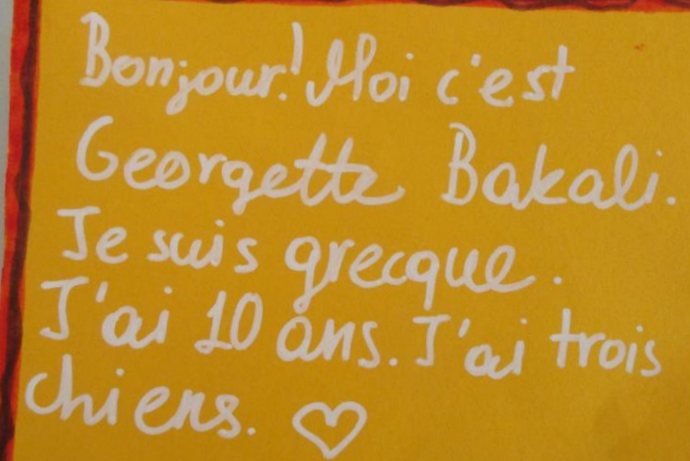 Bonjour! Moi c'est
Georgette Bakali.
Je suis grecque.
J'ai 10 ans. J'ai trois
chiens. ♡